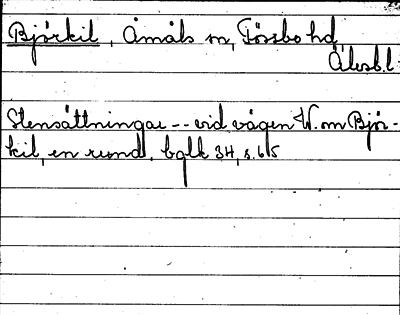 Björkil, Åmåls sn, Tössbo hd,
Älvsb.l.
Stensättningar -- vid vägen W. om Björ-
kil, en rund. bglk 34, s. 65